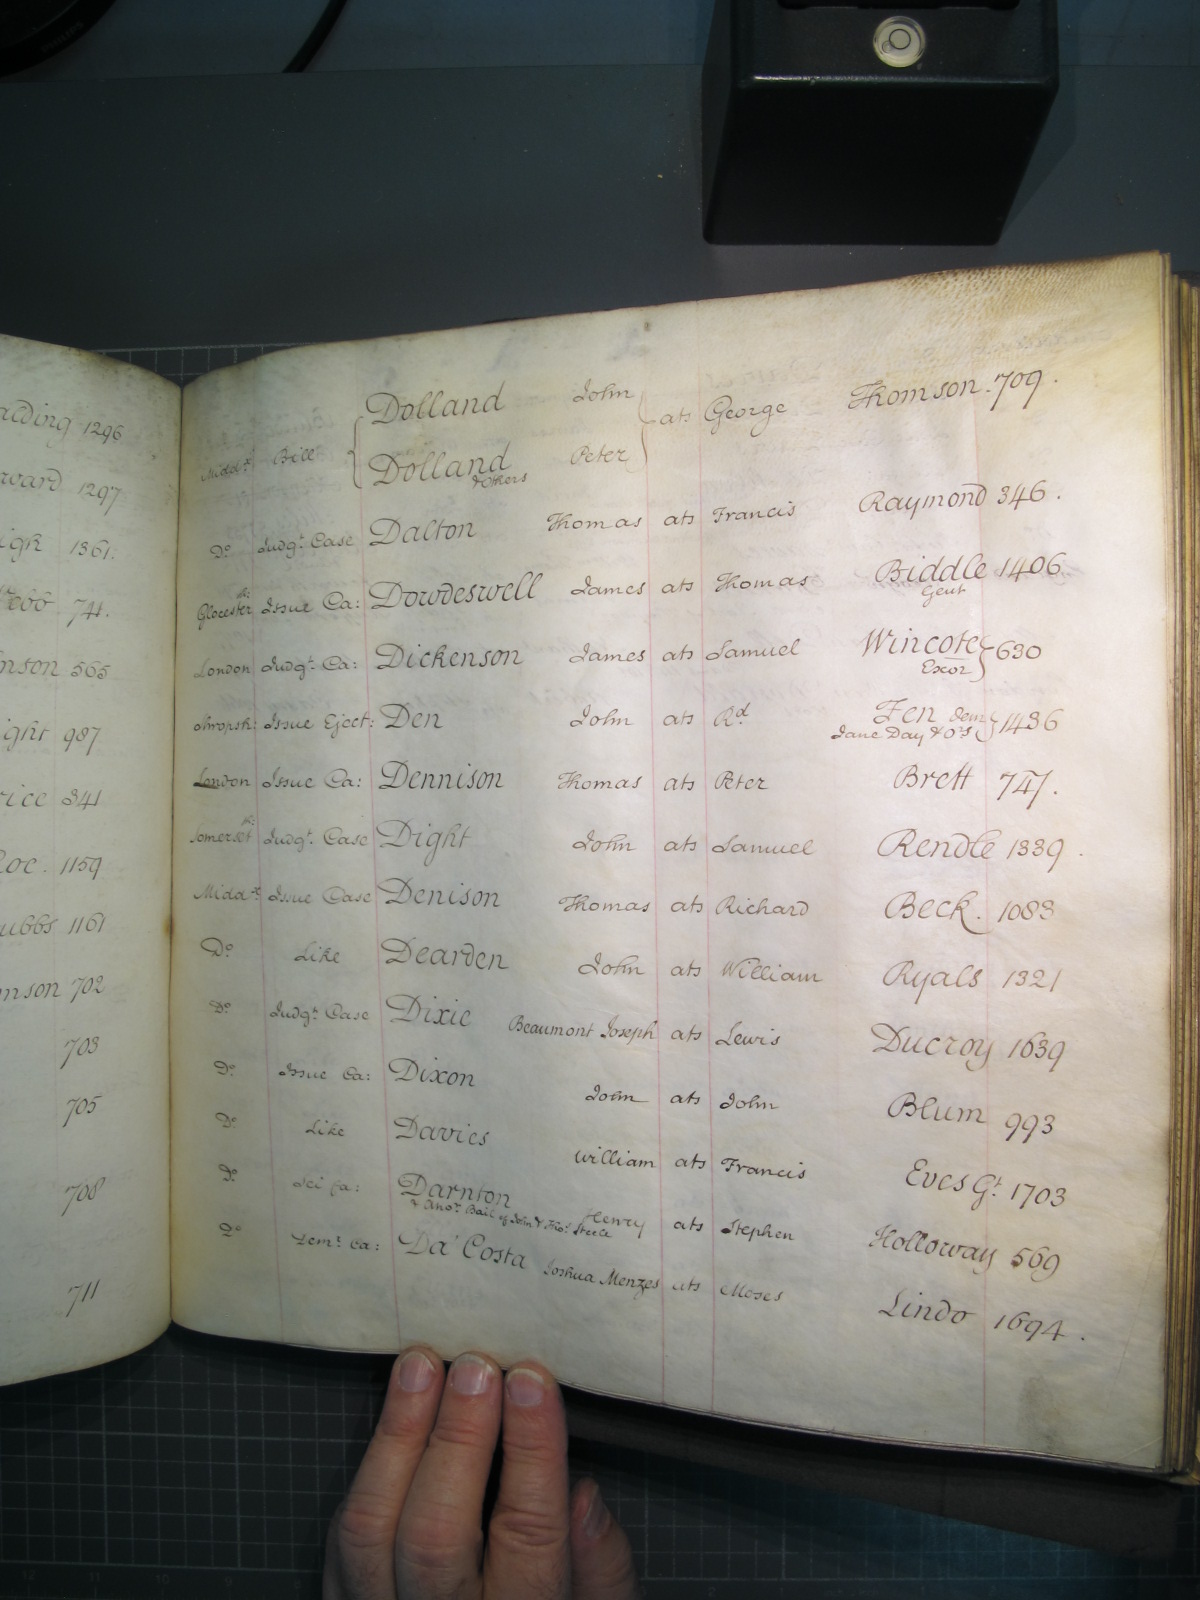 ading 1296
ward 1297
igh 1361.
Webb 741.
nson 565
ight 987
rice 341
Roe. 1159
ubbs 1161
nson 702
703
705
708
711
Middx Bill { Dolland John } ats George Thomson. 709.
Dolland & others Peter
Do Judgt. Case Dalton Thomas ats Francis Raymond 346.
Glocester sh: Issue Ca: Dowdeswell James ats Thomas Biddle Gent 1406
London Judgt. Ca: Dickenson James ats Samuel Wincote Exor } 630
Shropsh: Issue Eject: Den John ats Rd Fen dem Jane Day & Ors } 1436
London Issue Ca: Dennison Thomas ats Peter Brett 747.
Somerset sh: Judgt. Case Dight John ats Samuel Rendle 1339.
Middx Issue Case Denison Thomas ats Richard Beck. 1083
Do Like Dearden John ats William Ryals 1321
Do Judgt. Case Dixie Beaumont Joseph ats Lewis Ducroy 1639
Do Issue Ca: Dixon John ats John Blum 993
Do Like Davies William ats Francis Eves Gt 1703
Do Sci fa: Darnton Henry ats Stephen Holloway 569
& Anor. Bail of John & Thos. Steele
Do Demr. Ca: Da' Costa Joshua Menzes ats Moses Lindo 1694.